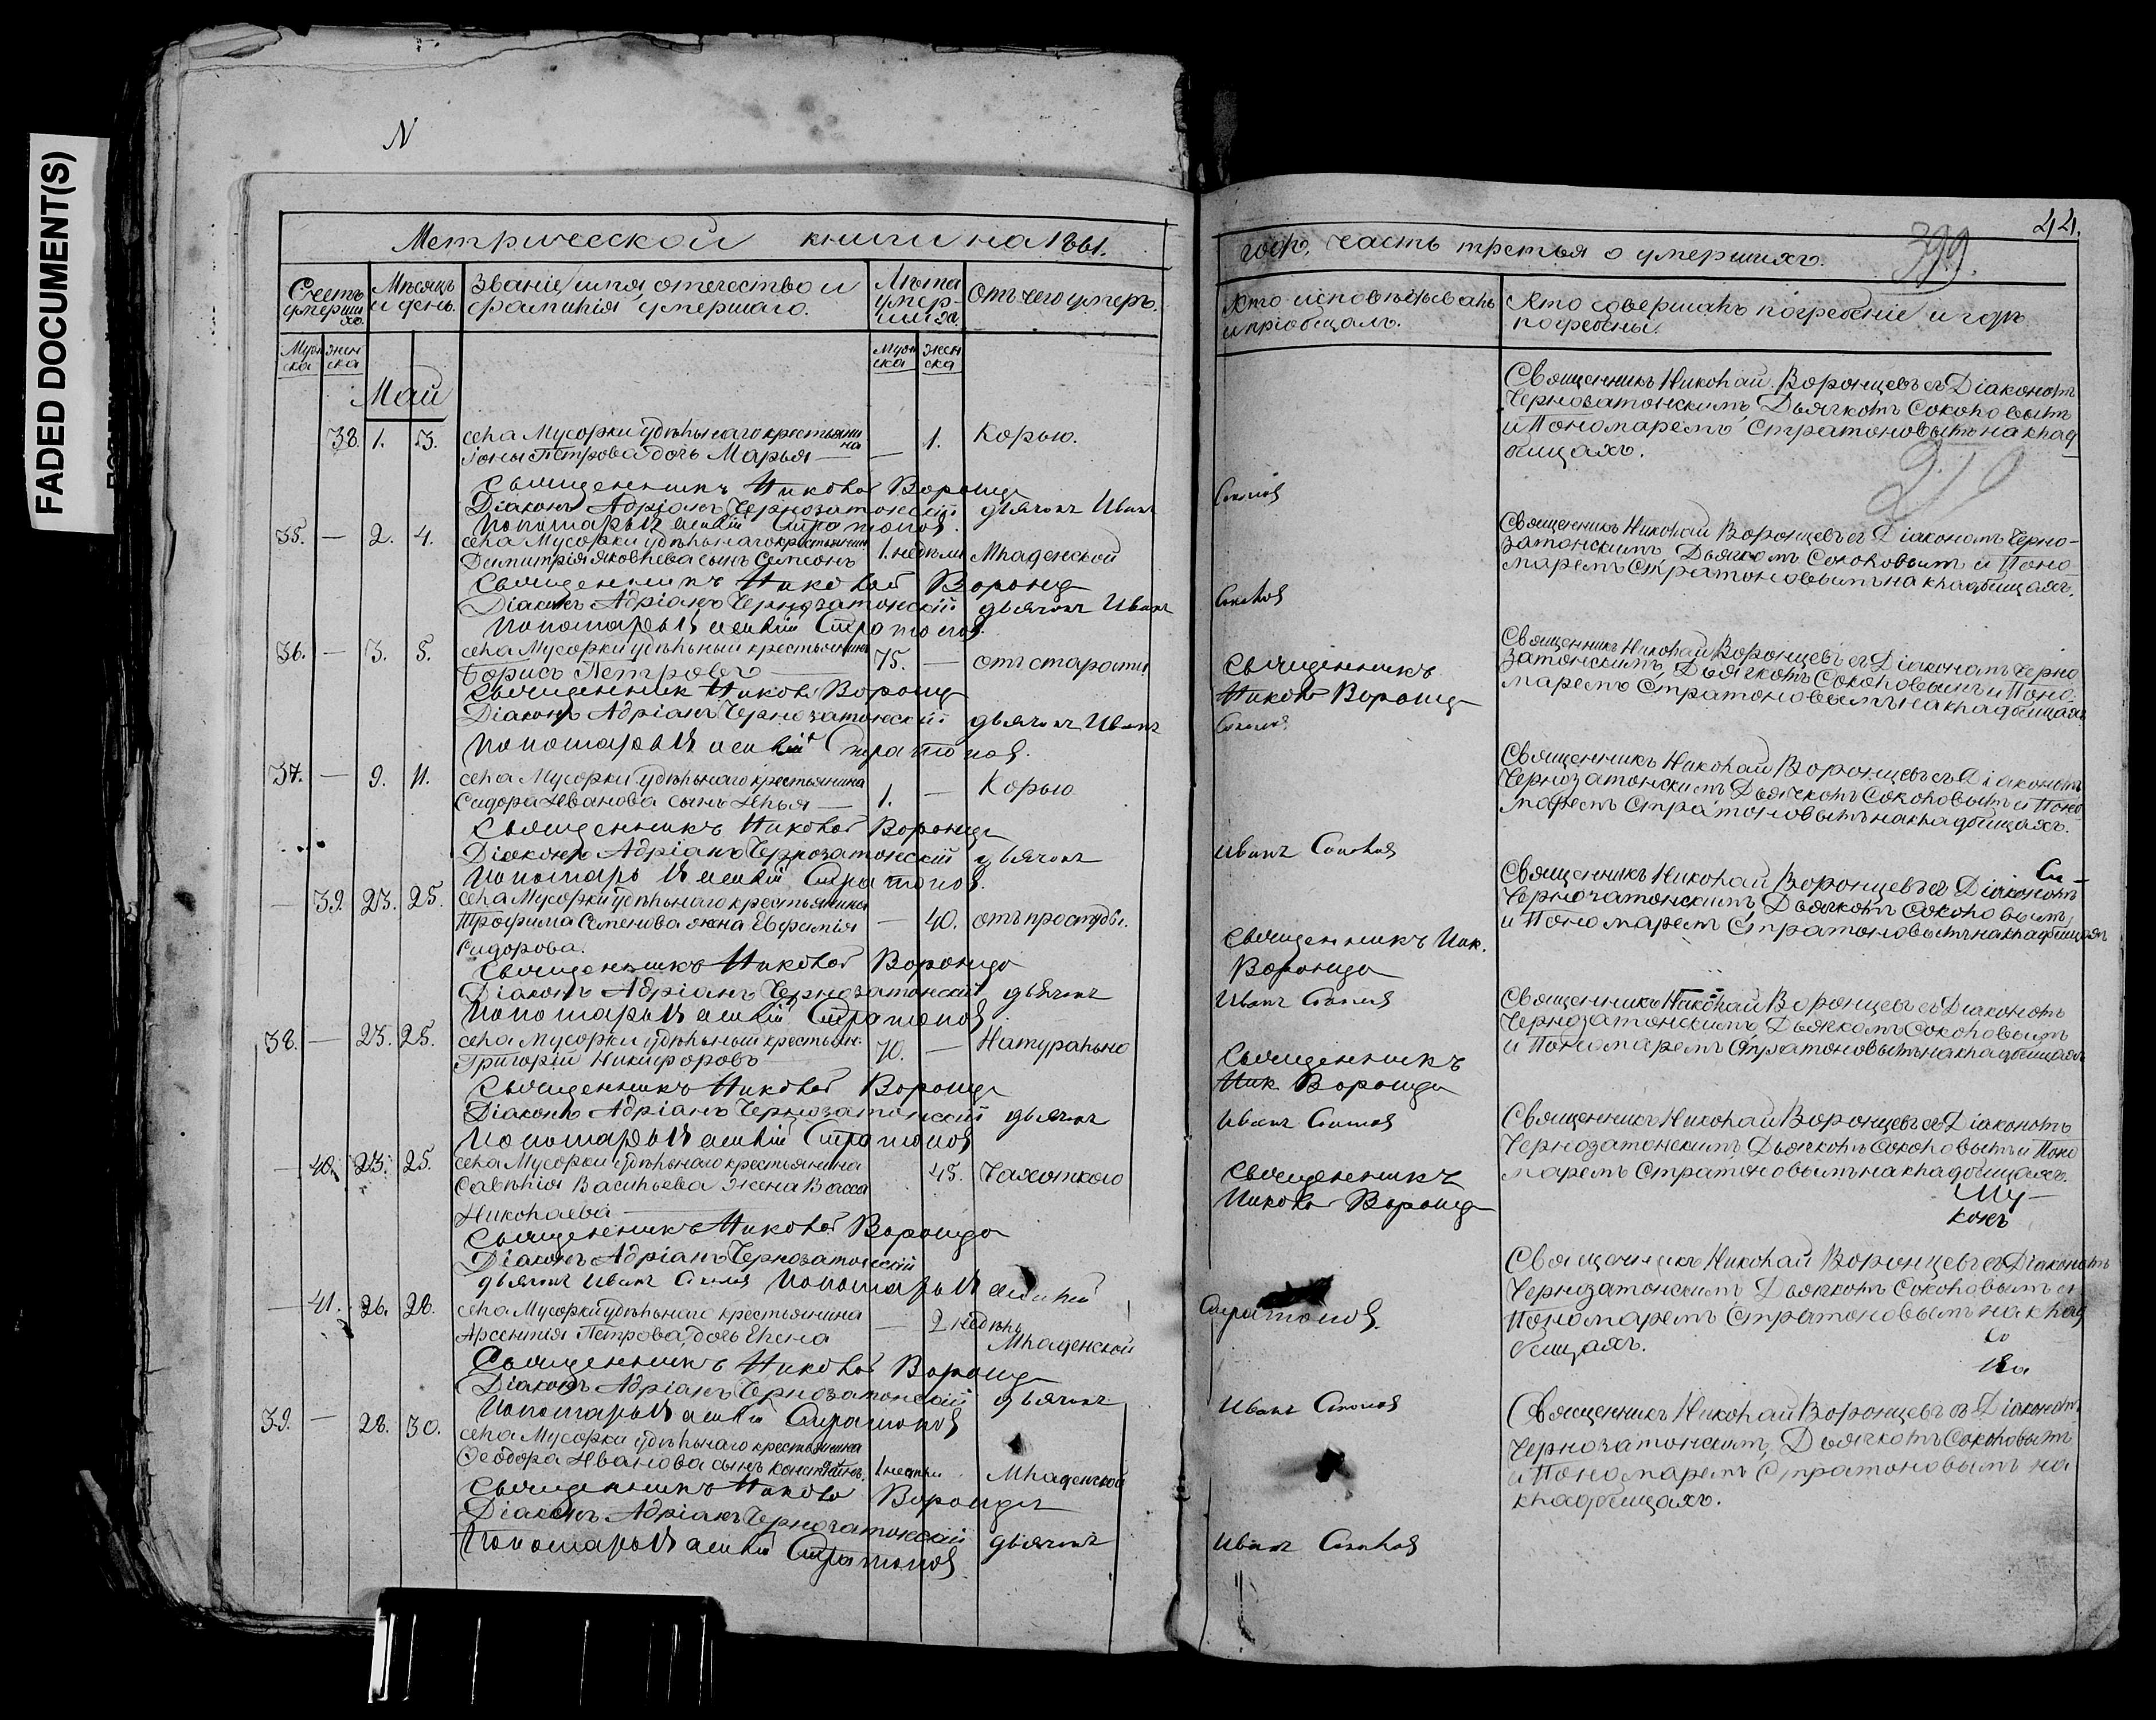 FADED DOCUMENT(S)
N
Метрической книги на 1861.
Счетъ умершихъ.
Мѣсяцъ и день.
Званіе, имя, отечество и фамилія умершаго.
Лѣта умершаго
Отъ чего умеръ.
Мужска
женска
Мужска
женска
Май
38. 1. 3. села Мусорки удѣльнаго крестьянина
Іоны Петрова дочь Марья — — 1. Корью.
Священникъ Николай Воронцо
Діаконъ Адріанъ Чернозатонскій дьячокъ Иванъ
Пономарь Стратонов.
35. — 2. 4. села Мусорки удѣльнаго крестьянина
Димитрія Яковлева сынъ Симеонъ 1. недѣли Младенской
Священникъ Николай Воронцо
Діаконъ Адріанъ Чернозатонскій дьячокъ Иванъ
Пономарь Стратонов.
36. — 3. 5. села Мусорки удѣльный крестьянинъ
Борисъ Петровъ — 75. — отъ старости
Священник Николай Воронцо
Діаконъ Адріанъ Чернозатонскій дьячокъ Иванъ
Пономарь Стратонов.
37. — 9. 11. села Мусорки удѣльнаго крестьянина
Сидора Иванова сынъ Илья — 1. — Корью
Священникъ Николай Воронцо
Діаконъ Адріанъ Чернозатонскій дьячокъ
Пономарь Стратонов.
— 39. 23. 25. села Мусорки удѣльнаго крестьянина
Трофима Семенова жена Евфимія — 40. отъ простуды.
Сидорова.
Священникъ Николай Воронцо
Діаконъ Адріанъ Чернозатонскій дьячокъ
Пономарь Стратонов
38. — 23. 25. села Мусорки удѣльный крестьян.
Григорій Никифоровъ 70. — Натурально
Священникъ Николай Воронцо
Діаконъ Адріанъ Чернозатонскій дьячокъ
Пономарь Стратонов
— 40. 23. 25. села Мусорки удѣльнаго крестьянина
Савелія Васильева жена Васса 45. Чахоткою
Николаева —
Священникъ Николай Воронцо
Діаконъ Адріанъ Чернозатонскій
дьячокъ Иванъ Соколов Пономарь
— 41. 26. 28. села Мусорки удѣльнаго крестьянина
Арсентія Петрова дочь Елена — 2 недѣль
Младенской
Священникъ Николай Воронцо
Діаконъ Адріанъ Чернозатонскій дьячокъ
Пономарь Стратонов
39. — 28. 30. села Мусорки удѣльнаго крестьянина
Ѳеодора Иванова сынъ Константинъ. 1 недѣли Младенской
Священникъ Николай Воронцо
Діаконъ Адріанъ Чернозатонскій
Пономарь Стратонов дьячокъ
44.
399.
года, часть третья о умершихъ.
Кто исповѣдывалъ и пріобщалъ.
Кто совершалъ погребеніе и гдѣ погребены.
Священникъ Николай Воронцевъ съ Діакономъ
Чернозатонскимъ, Дьячкомъ Соколовымъ
и Пономаремъ Стратоновымъ на клад
бищахъ.
Соколов
Священникъ Николай Воронцевъ съ Діакономъ Черно-
затонскимъ Дьячкомъ Соколовымъ и Поно
маремъ Стратоновымъ на кладбищахъ.
Соколов
Священникъ Николай Воронцевъ съ Діакономъ Черно
затонскимъ, Дьячкомъ Соколовымъ и Поно
маремъ Стратоновымъ на кладбищахъ
Священникъ
Николай Воронцо
Соколов
Священникъ Николай Воронцевъ съ Діакономъ
Чернозатонскимъ Дьячкомъ Соколовымъ и Поно
маремъ Стратоновымъ на кладбищахъ.
Иванъ Соколов
Священникъ Николай Воронцевъ съ Діакономъ
Чернозатонскимъ, Дьячкомъ Соколовымъ,
и Пономаремъ Стратоновымъ на кладбищахъ
Священникъ Ник.
Воронцо
Иванъ Соколов
Священникъ Николай Воронцевъ съ Діакономъ
Чернозатонскимъ, Дьячкомъ Соколовымъ
и Пономаремъ Стратоновымъ на кладбищахъ
Священникъ
Ник. Воронцо
Иванъ Соколов
Священникъ Николай Воронцевъ съ Діакономъ
Чернозатонскимъ Дьячкомъ Соколовымъ и Поно
маремъ Стратоновымъ на кладбищахъ.
Священникъ
Николай Воронцо
Священникъ Николай Воронцевъ съ Діакономъ
Чернозатонскимъ Дьячкомъ Соколовымъ и
Пономаремъ Стратоновымъ на клад
бищахъ.
Стратонов.
Иванъ Соколов
Священникъ Николай Воронцевъ съ Діакономъ
Чернозатонскимъ, Дьячкомъ Соколовымъ
и Пономаремъ Стратоновымъ на
кладбищахъ.
Иванъ Соколов